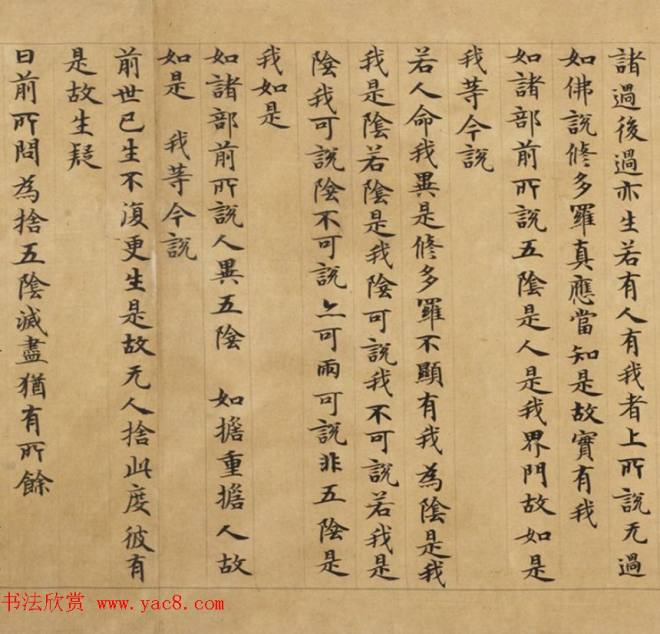 諸過後過亦生若有人有我者上所說无過
如佛說修多羅真應當知是故實有我
如諸部前所說五陰是人是我界門故如是
我等今說
若人命我異是修多羅不顯有我為陰是我
我是陰若陰是我陰可說我不可說若我是
陰我可說陰不可說亦可兩可說非五陰是
我如是
如諸部前所說人異五陰 如擔重擔人故
如是 我等今說
前世已生不復更生是故无人捨此度彼有
是故生疑
曰前所問為捨五陰滅盡猶有所餘
书法欣赏 www.yac8.com